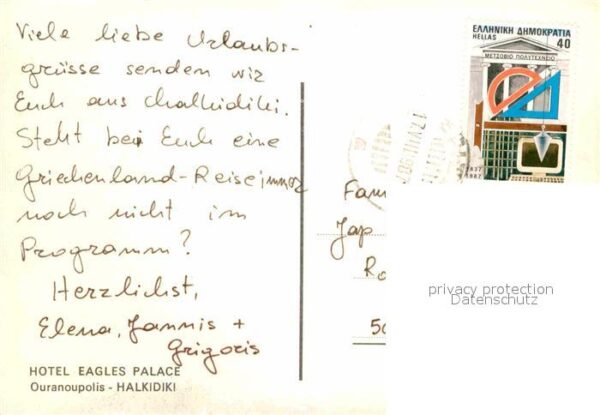 Viele liebe Urlaubs-
grüsse senden wir
Euch aus Chalkidiki.
Steht bei Euch eine
Griechenland-Reise immer
noch nicht im
Programm?
Herzlichst,
Elena, Jannis +
Grigoris
HOTEL EAGLES PALACE
Ouranoupolis - HALKIDIKI
ΕΛΛΗΝΙΚΗ ΔΗΜΟΚΡΑΤΙΑ
HELLAS 40
ΜΕΤΣΟΒΙΟ ΠΟΛΥΤΕΧΝΕΙΟ
1987
Fam
Jap
Ro
50
privacy protection
Datenschutz